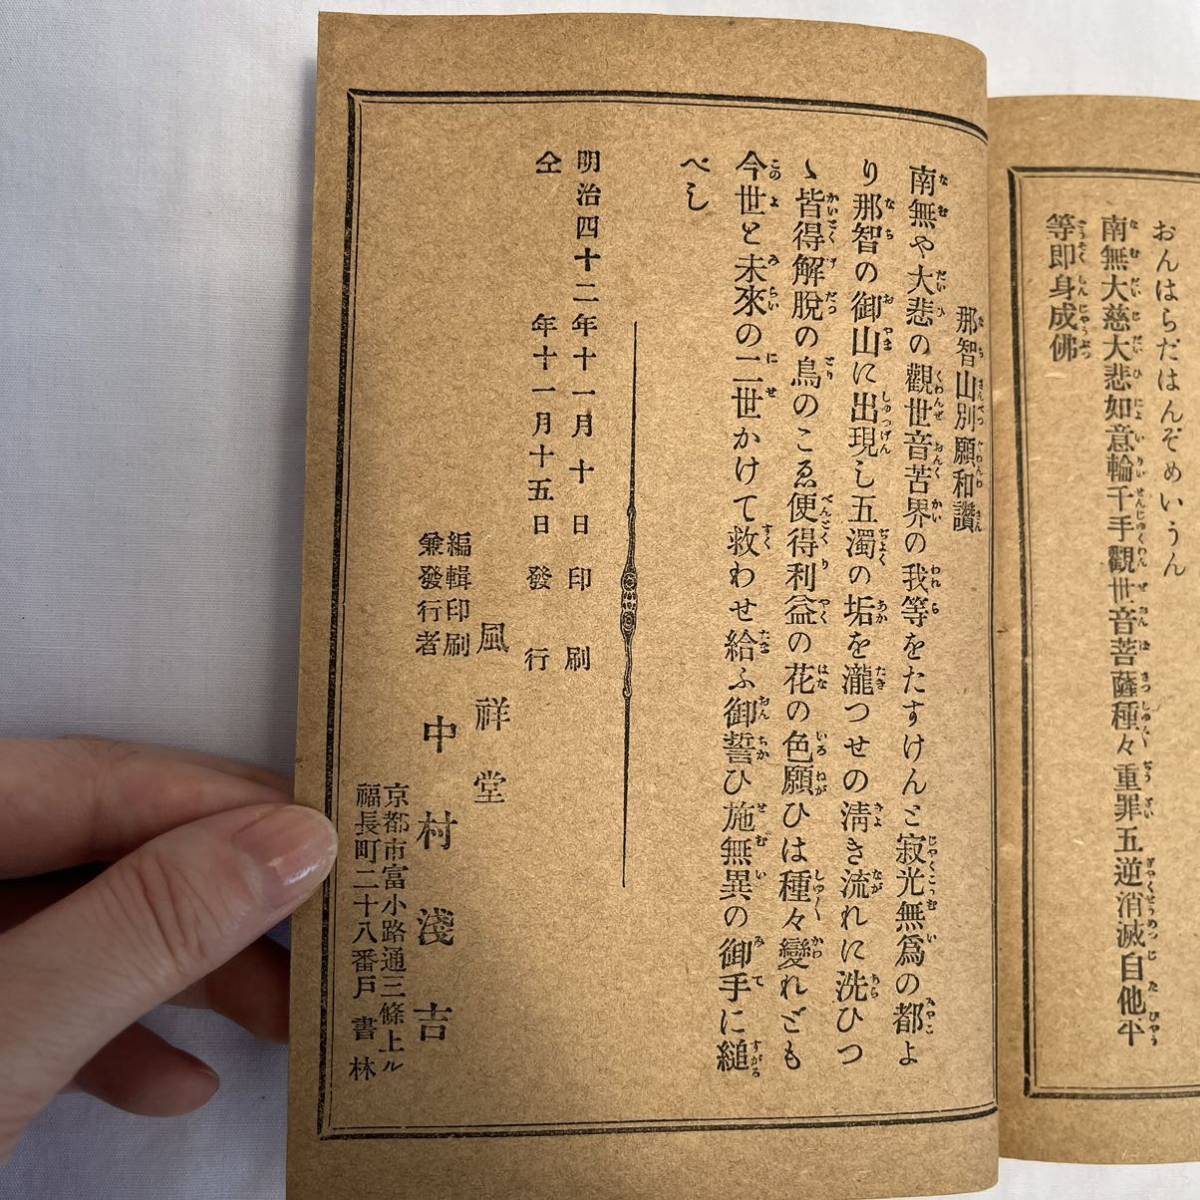 おんはらだはんぞめいうん
南無大慈大悲如意輪千手觀世音菩薩種々重罪五逆消滅自他平
等即身成佛
那智山別願和讃
南無や大悲の觀世音苦界の我等をたすけんと寂光無爲の都よ
り那智の御山に出現し五濁の垢を瀧つせの淸き流れに洗ひつ
ゝ皆得解脱の鳥のこゑ便得利益の花の色願ひは種々變れども
今世と未來の二世かけて救わせ給ふ御誓ひ施無異の御手に縋
べし
明治四十二年十一月十日印刷
仝年十一月十五日發行
風祥堂
編輯印刷
兼發行者
中村淺吉
京都市富小路通三條上ル
福長町二十八番戸書林